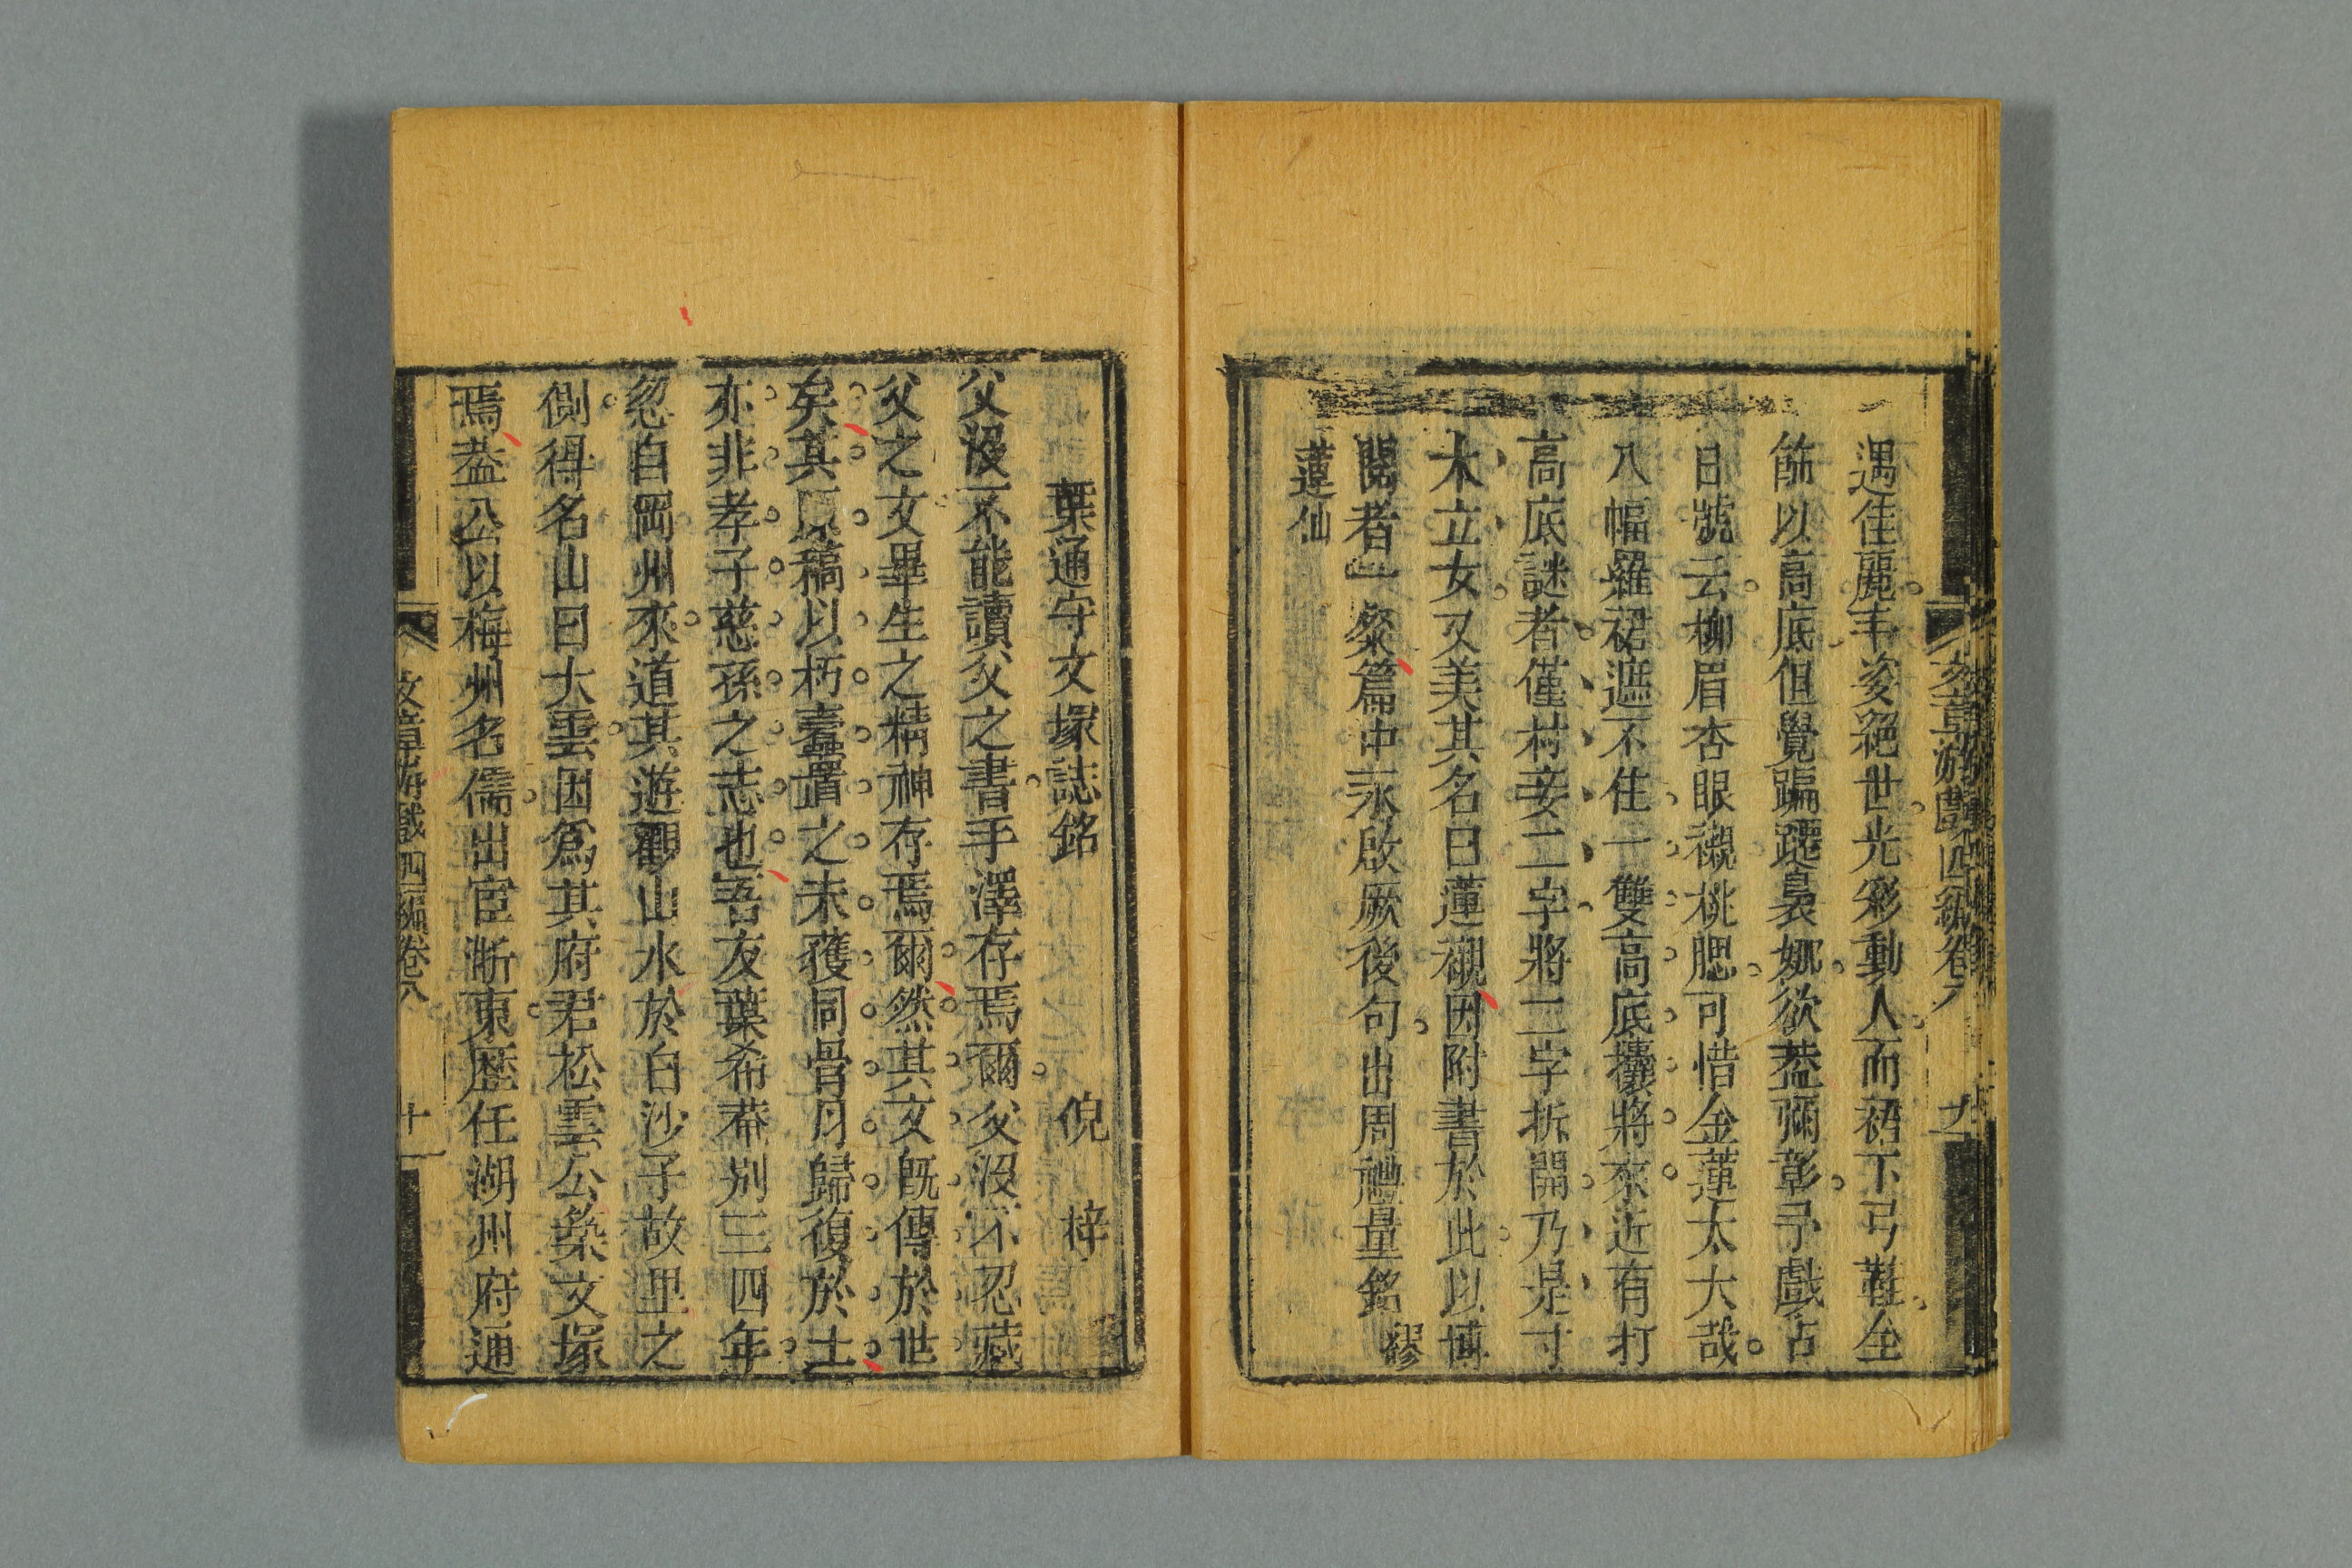 遇佳麗丰姿絕世光彩動人而裙下弓鞋全
飾以高底但覺蹁躚裊娜欲葢彌彰予戲占
日號云柳眉杏眼襯桃腮可惜金蓮太大哉
八幅羅裙遮不住一雙高底攮將來近有打
高底謎者僅村妾二字將二字拆開乃是寸
木立女又美其名曰蓮襯因附書於此以博
閱者一粲篇中永啟厥後句出周禮量銘繆
蓮仙
文章游戲四編卷八
葉通守文塚誌銘 倪 梓
父沒不能讀父之書手澤存焉爾父沒不忍藏
父之文畢生之精神存焉爾然其文旣傳於世
矣其原稿以朽蠹置之未獲同骨月歸復於土
亦非孝子慈孫之志也吾友葉希菴別三四年
忽自岡州來道其遊觀山水於白沙子故里之
側得名山曰大雲因爲其府君松雲公築文塚
焉葢公以梅州名儒出宦浙東歷任湖州府通
文章游戲四編卷八 十一